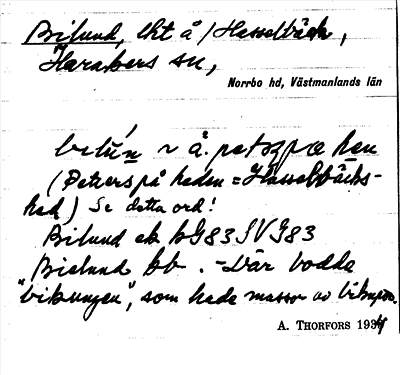 Bilund, lht å /Hasselbäck,
Harakers sn,
Norrbo hd, Västmanlands län
bilún ~ å. petæspæ hen
(Peterspå heden = Hasselbäcks-
hed) Se detta ord!
Bilund ek bG83IVG83
Bielund bb. - Där bodde
"bikungen", som hade massor av bikupor.
A. Thorfors 1934